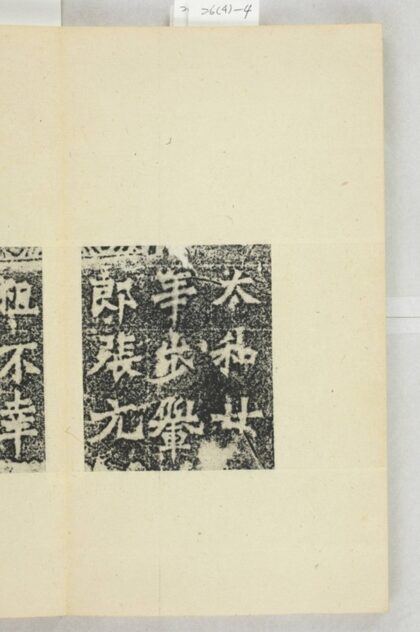 太和廿
年步轝
郎張元
祖不幸
26(4)-4